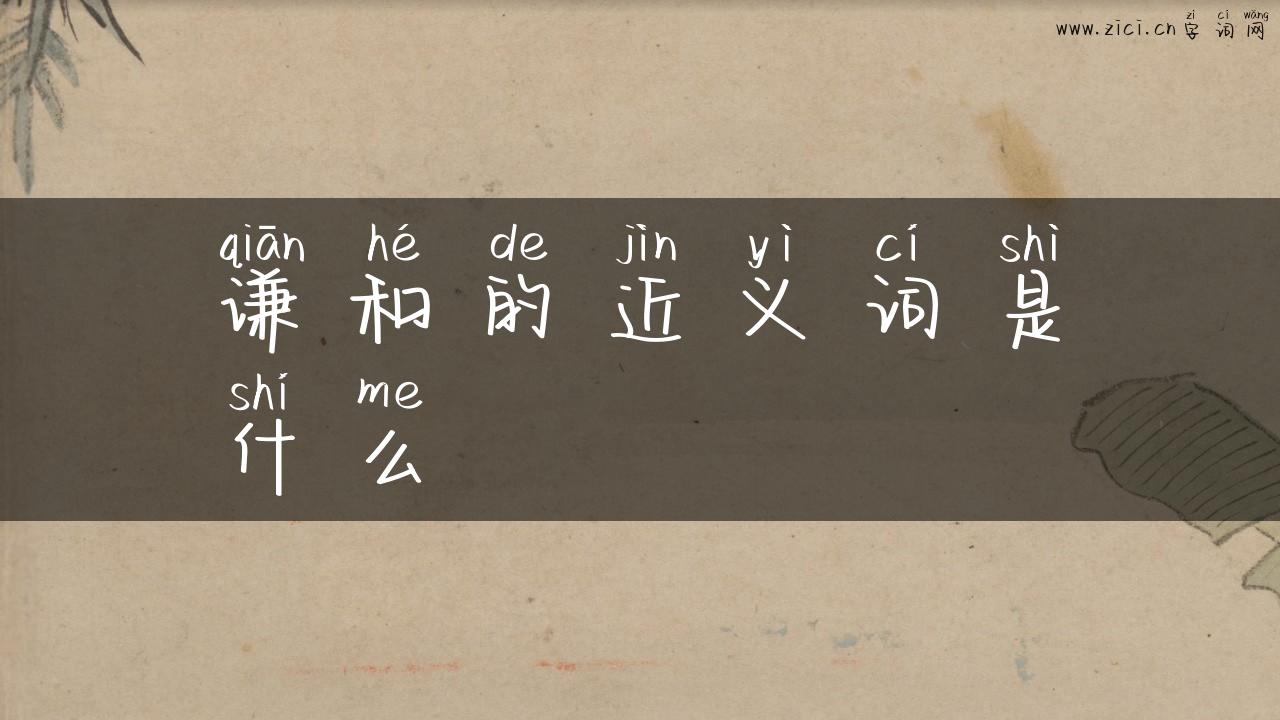 zì cí wǎng
www.zici.cn 字词网
qiān hé de jìn yì cí shì
谦和的近义词是
shí me
什么